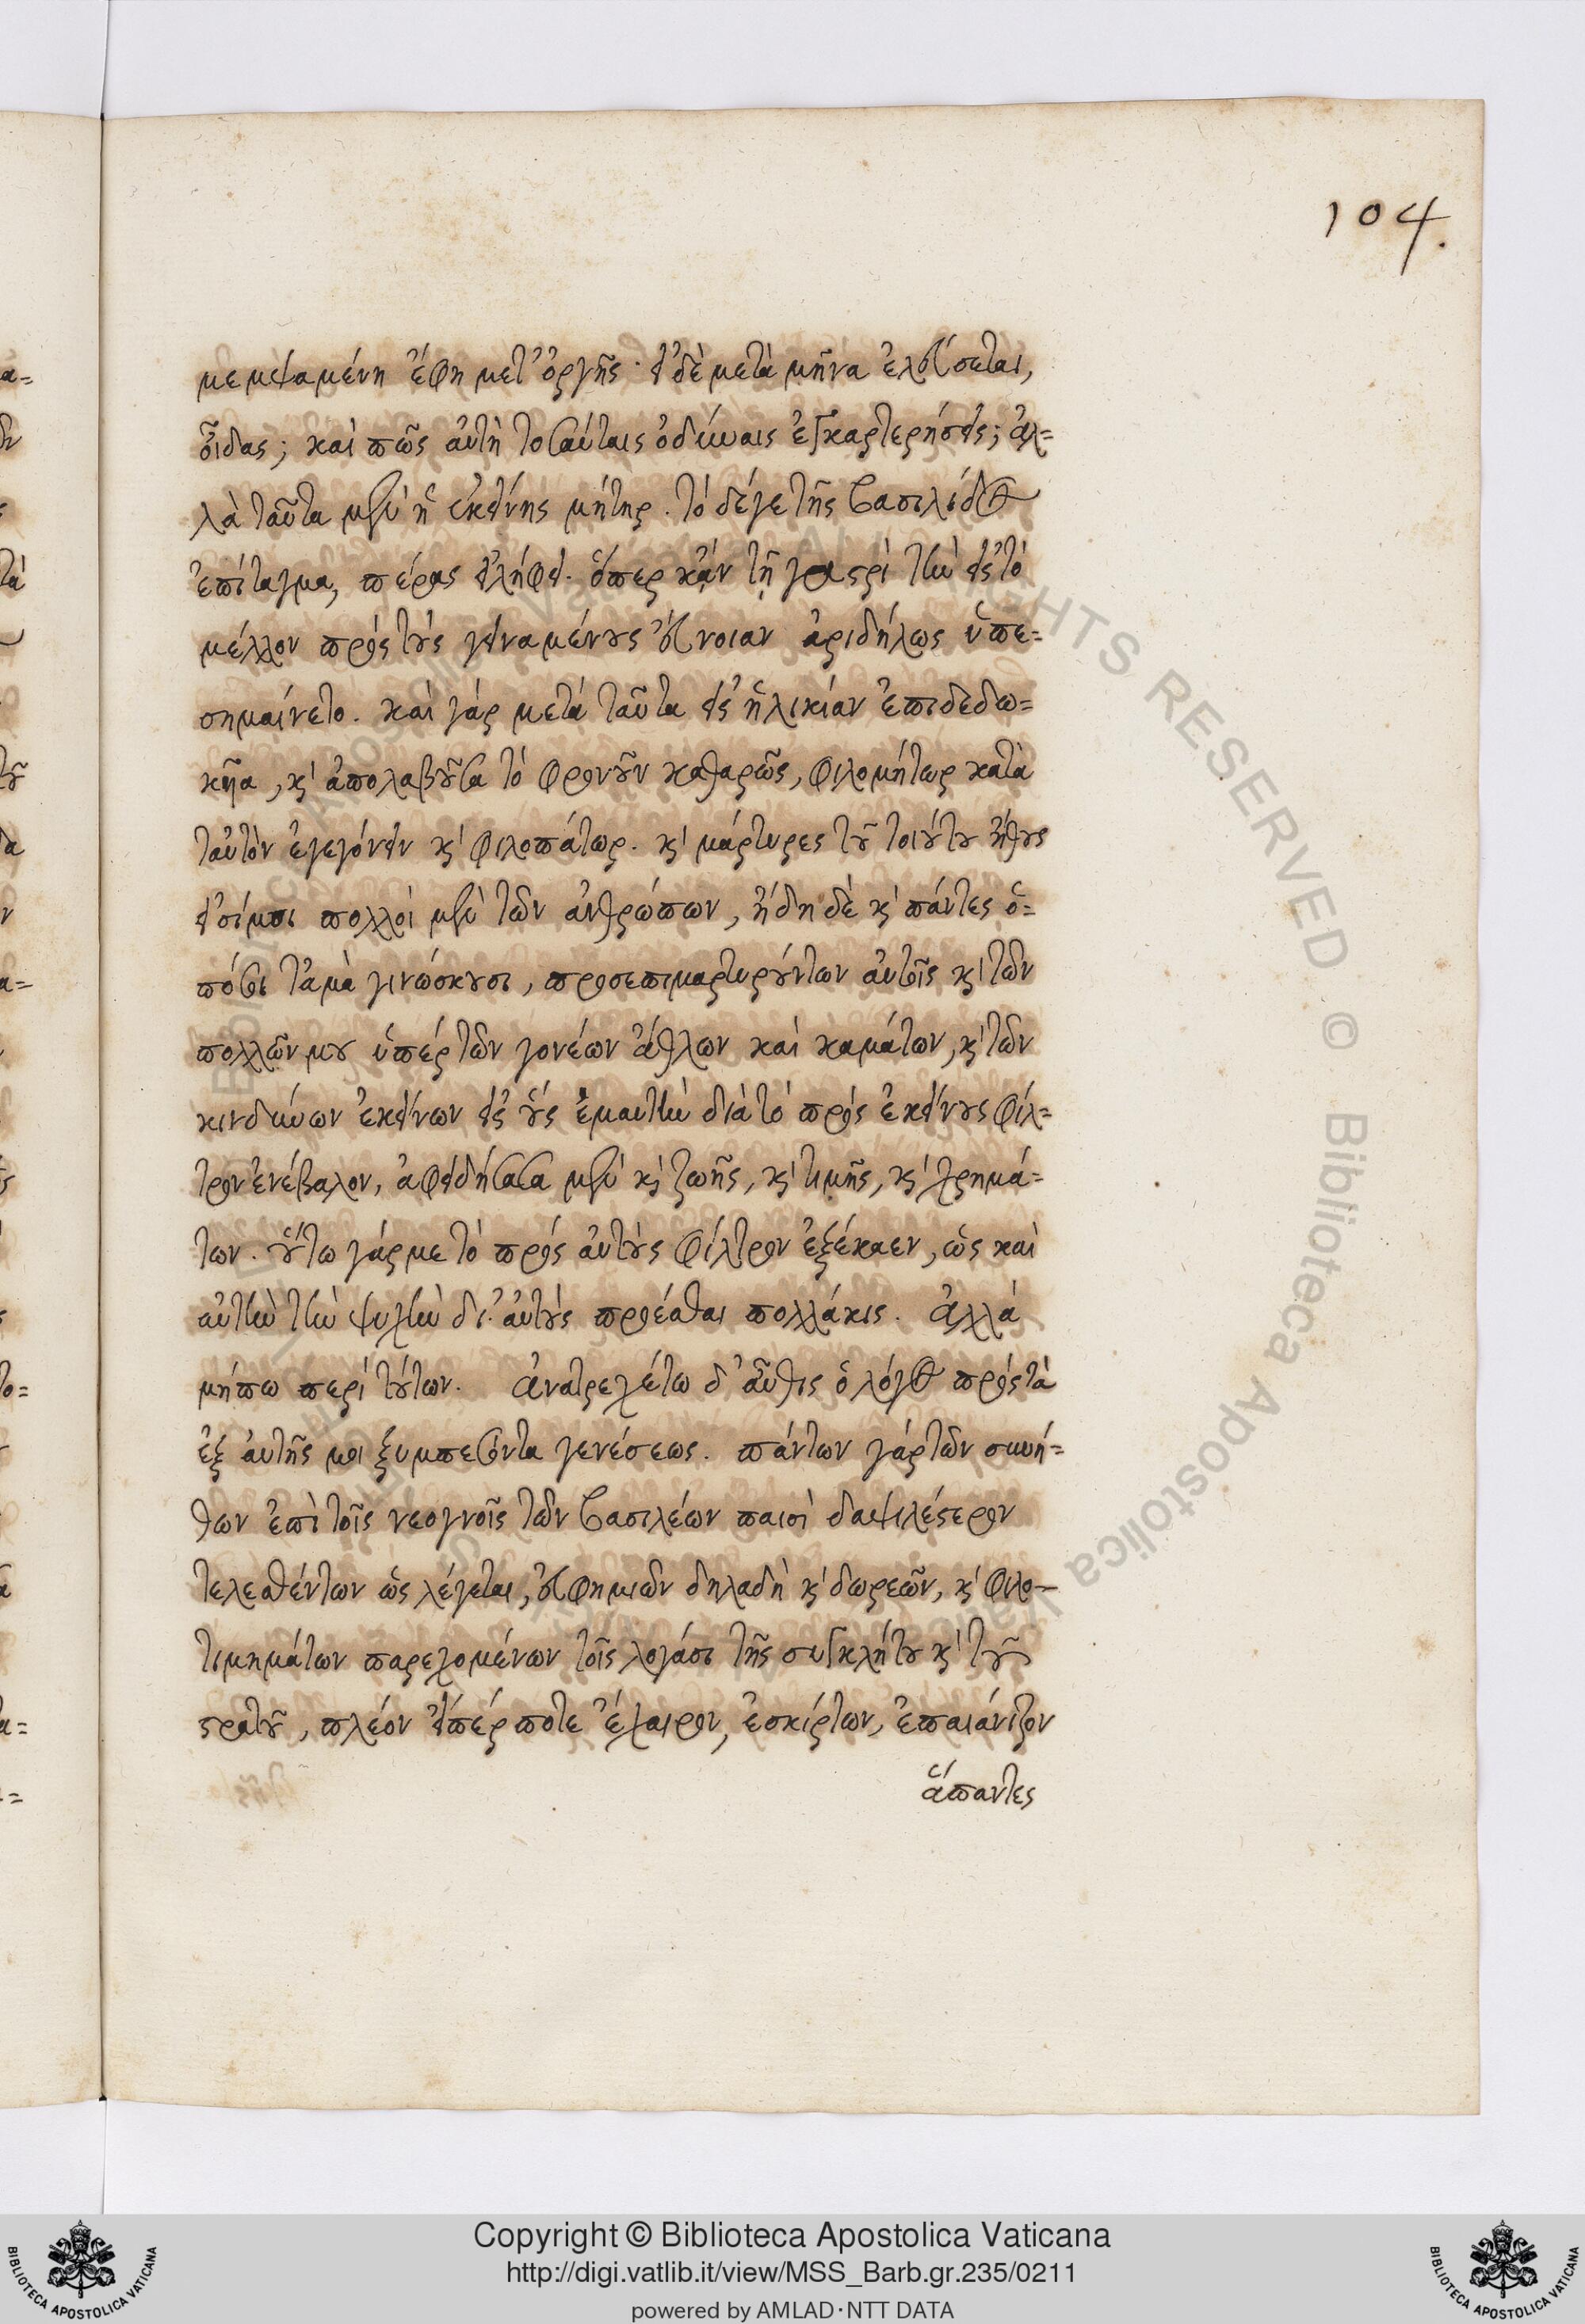 104.
μεμψαμένη ἔφη μετ' ὀργῆς· εἰ δὲ μετὰ μῆνα ἐλεύσεται,
οἶδας; καὶ πῶς αὐτὴ τοσαύταις ὀδύναις ἐγκαρτερήσεις; ἀλ=
λὰ ταῦτα μὲν ἡ ἐκείνης μήτηρ. τὸ δέ γε τῆς βασιλίδος
ἐπίταγμα, πέρας εἰλήφει. ὅπερ κᾂν τῇ γαστρὶ τὴν εἰς τὸ
μέλλον πρὸς τοὺς γειναμένους εὔνοιαν ἀριδήλως ὑπε=
σημαίνετο. καὶ γὰρ μετὰ ταῦτα εἰς ἡλικίαν ἐπιδεδω=
κῆα, κ' ἀπολαβοῦσα τὸ φρονοῦν καθαρῶς, φιλομήτωρ κατὰ
ταὐτὸν ἐγεγόνειν κ' φιλοπάτωρ. κ' μάρτυρες τοῦ τοιούτου ἤθους
εἰσί μοι πολλοὶ μὲν τῶν ἀνθρώπων, ἤδη δὲ κ' πάντες ὁ=
πόσοι τἀμὰ γινώσκουσι, προσεπιμαρτυρούντων αὐτοῖς κ' τῶν
πολλῶν μου ὑπὲρ τῶν γονέων ἄθλων καὶ καμάτων, κ' τῶν
κινδύνων ἐκείνων εἰς οὓς ἐμαυτὴν διὰ τὸ πρὸς ἐκείνους φίλ=
τρον ἐνέβαλον, ἀφειδήσασα μὲν κ' ζωῆς, κ' τιμῆς, κ' χρημά=
των. οὕτω γάρ με τὸ πρὸς αὐτοὺς φίλτρον ἐξέκαεν, ὡς καὶ
αὐτὴν τὴν ψυχὴν δι' αὐτοὺς προέσθαι πολλάκις. ἀλλὰ
μήπω περὶ τούτων. ἀνατρεχέτω δ' αὖθις ὁ λόγος πρὸς τὰ
ἐξ αὐτῆς μοι ξυμπεσόντα γενέσεως. πάντων γὰρ τῶν συνή=
θων ἐπὶ τοῖς νεογνοῖς τῶν βασιλέων παισὶ δαψιλέστερον
τελεσθέντων ὡς λέγεται, εὐφημιῶν δηλαδὴ κ' δωρεῶν, κ' φιλο-
τιμημάτων παρεχομένων τοῖς λογάσι τῆς συγκλήτου κ' τοῦ
στρατοῦ, πλέον εἴπέρ ποτε ἔχαιρον, ἐσκίρτων, ἐπαιάνιζον
ἅπαντες
Copyright © Biblioteca Apostolica Vaticana
http://digi.vatlib.it/view/MSS_Barb.gr.235/0211
powered by AMLAD·NTT DATA